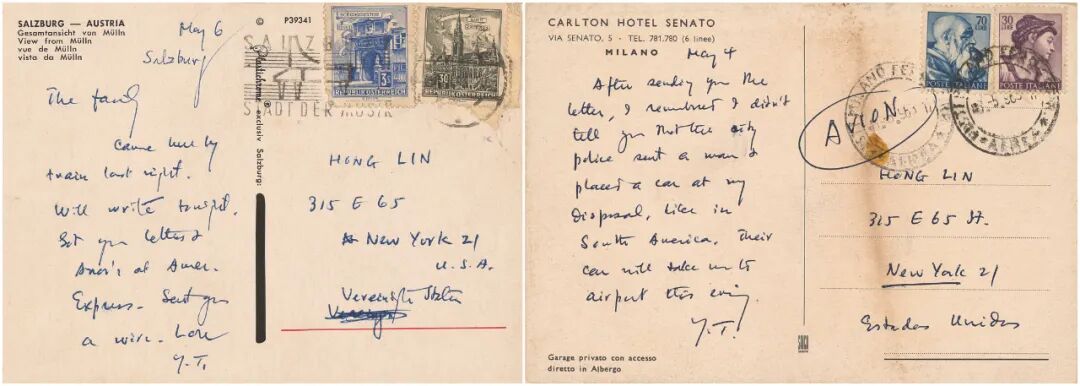 SALZBURG — AUSTRIA
Gesamtansicht von Mülln
View from Mülln
vue de Mülln
vista da Mülln
May 6
Salzburg
The family
Came here by
train last night.
Will write tonight.
Got your letters &
at Amer.
Express. Sent you
a wire. Love
Y.T.
© P39341
exclusiv Salzburg:
SALZB
STADT DER MUSIK
3S
REPUBLIK ÖSTERREICH
30
REPUBLIK ÖSTERREICH
HONG LIN
315 E 65
New York 21
U.S.A.
Vereinigte Staten
CARLTON HOTEL SENATO
VIA SENATO, 5 - TEL. 781.780 (6 linee)
MILANO
May 4
After sending you the
letter, I remembered I didn't
tell you that the city
police sent a man &
placed a car at my
disposal, like in
South America. Their
car will take us to
airport this evening.
Y.T.
Garage privato con accesso
diretto in Albergo
70 LIRE
POSTE ITALIANE
30 LIRE
POSTE ITALIANE
MILANO
AVION
HONG LIN
315 E 65 St.
New York 21
Estados Unidos